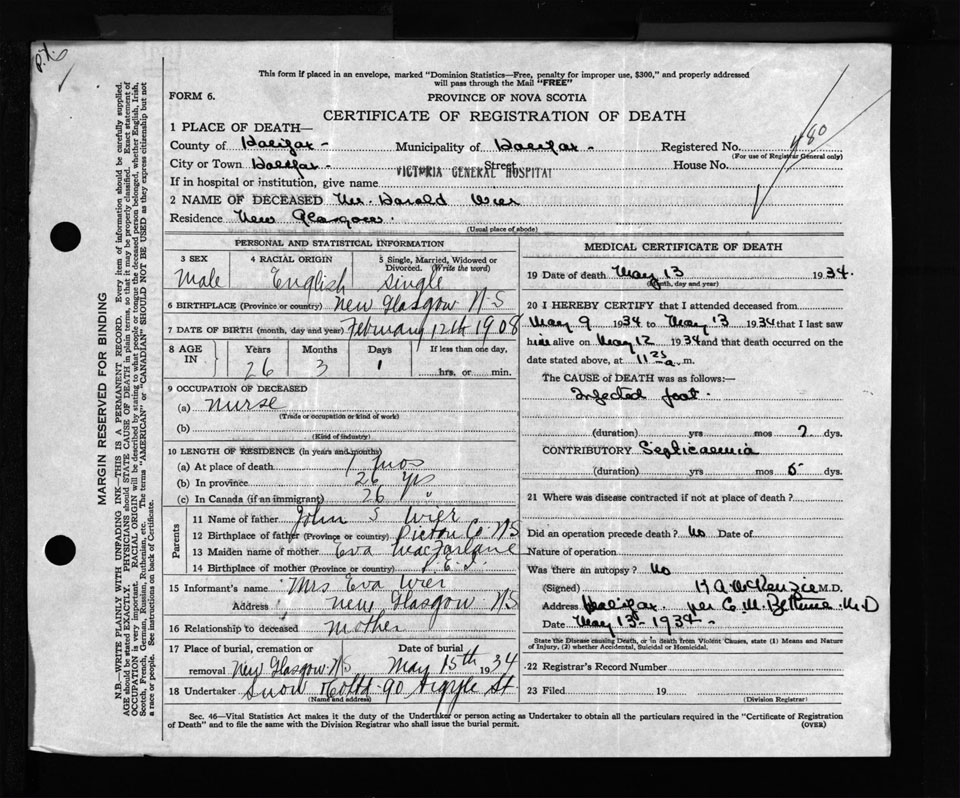 P.X.
This form if placed in an envelope, marked "Dominion Statistics—Free, penalty for improper use, $300," and properly addressed
will pass through the Mail "FREE"
FORM 6.
PROVINCE OF NOVA SCOTIA
CERTIFICATE OF REGISTRATION OF DEATH
1 PLACE OF DEATH—
County of Halifax - Municipality of Halifax - Registered No. 480
(For use of Registrar General only)
City or Town Halifax - Street House No.
VICTORIA GENERAL HOSPITAL
If in hospital or institution, give name
2 NAME OF DECEASED Mr. Harold Wier
Residence New Glasgow.
(Usual place of abode)
PERSONAL AND STATISTICAL INFORMATION
3 SEX 4 RACIAL ORIGIN 5 Single, Married, Widowed or
Divorced. (Write the word)
Male English Single
6 BIRTHPLACE (Province or country) New Glasgow N-S
7 DATE OF BIRTH (month, day and year) February 12th 1908
8 AGE IN Years Months Days If less than one day,
26 3 1 hrs. or min.
9 OCCUPATION OF DECEASED
(a) Nurse
(Trade or occupation or kind of work)
(b)
(Kind of industry)
10 LENGTH OF RESIDENCE (in years and months)
(a) At place of death mos
(b) In province 26 yrs
(c) In Canada (if an immigrant) 26 "
Parents
11 Name of father John S Wier
12 Birthplace of father (Province or country) Pictou Co NS
13 Maiden name of mother Eva MacFarlane
14 Birthplace of mother (Province or country) P.E.I.
15 Informant's name Mrs Eva Wier
Address New Glasgow NS
16 Relationship to deceased Mother
17 Place of burial, cremation or Date of burial
removal New Glasgow NS May 15th 1934
18 Undertaker Snow & Co Ltd 90 Argyle St
(Name and address)
MEDICAL CERTIFICATE OF DEATH
19 Date of death May 13 1934.
(Month, day and year)
20 I HEREBY CERTIFY that I attended deceased from
May 9 1934 to May 13 1934 that I last saw
him alive on May 12 1934 and that death occurred on the
date stated above, at 11 25 a. m.
The CAUSE of DEATH was as follows:—
Infected foot.
(duration) yrs mos 7 dys.
CONTRIBUTORY Septicaemia
(duration) yrs mos 5 dys.
21 Where was disease contracted if not at place of death?
Did an operation precede death? No Date of
Nature of operation
Was there an autopsy? No
(Signed) K A McKenzie M.D.
Address Halifax. per C. M. Bethune M.D
Date May 13th 1934 -
State the Disease causing Death, or in death from Violent Causes, state (1) Means and Nature
of Injury, (2) whether Accidental, Suicidal or Homicidal.
22 Registrar's Record Number
23 Filed 19
(Division Registrar)
Sec. 46—Vital Statistics Act makes it the duty of the Undertaker or person acting as Undertaker to obtain all the particulars required in the "Certificate of Registration
of Death" and to file the same with the Division Registrar who shall issue the burial permit. (OVER)
MARGIN RESERVED FOR BINDING
N.B.—WRITE PLAINLY WITH UNFADING INK—THIS IS A PERMANENT RECORD. Every item of information should be carefully supplied.
AGE should be stated EXACTLY. PHYSICIANS should STATE CAUSE OF DEATH in plain terms, so that it may be properly classified. Exact statement of
OCCUPATION is very important. RACIAL ORIGIN will be described by stating to what people or tongue the deceased person belonged, whether English, Irish,
Scotch, French, German, Russian, Ruthenian, etc. The terms "AMERICAN" or "CANADIAN" SHOULD NOT BE USED as they express citizenship but not
a race or people. See instructions on back of Certificate.